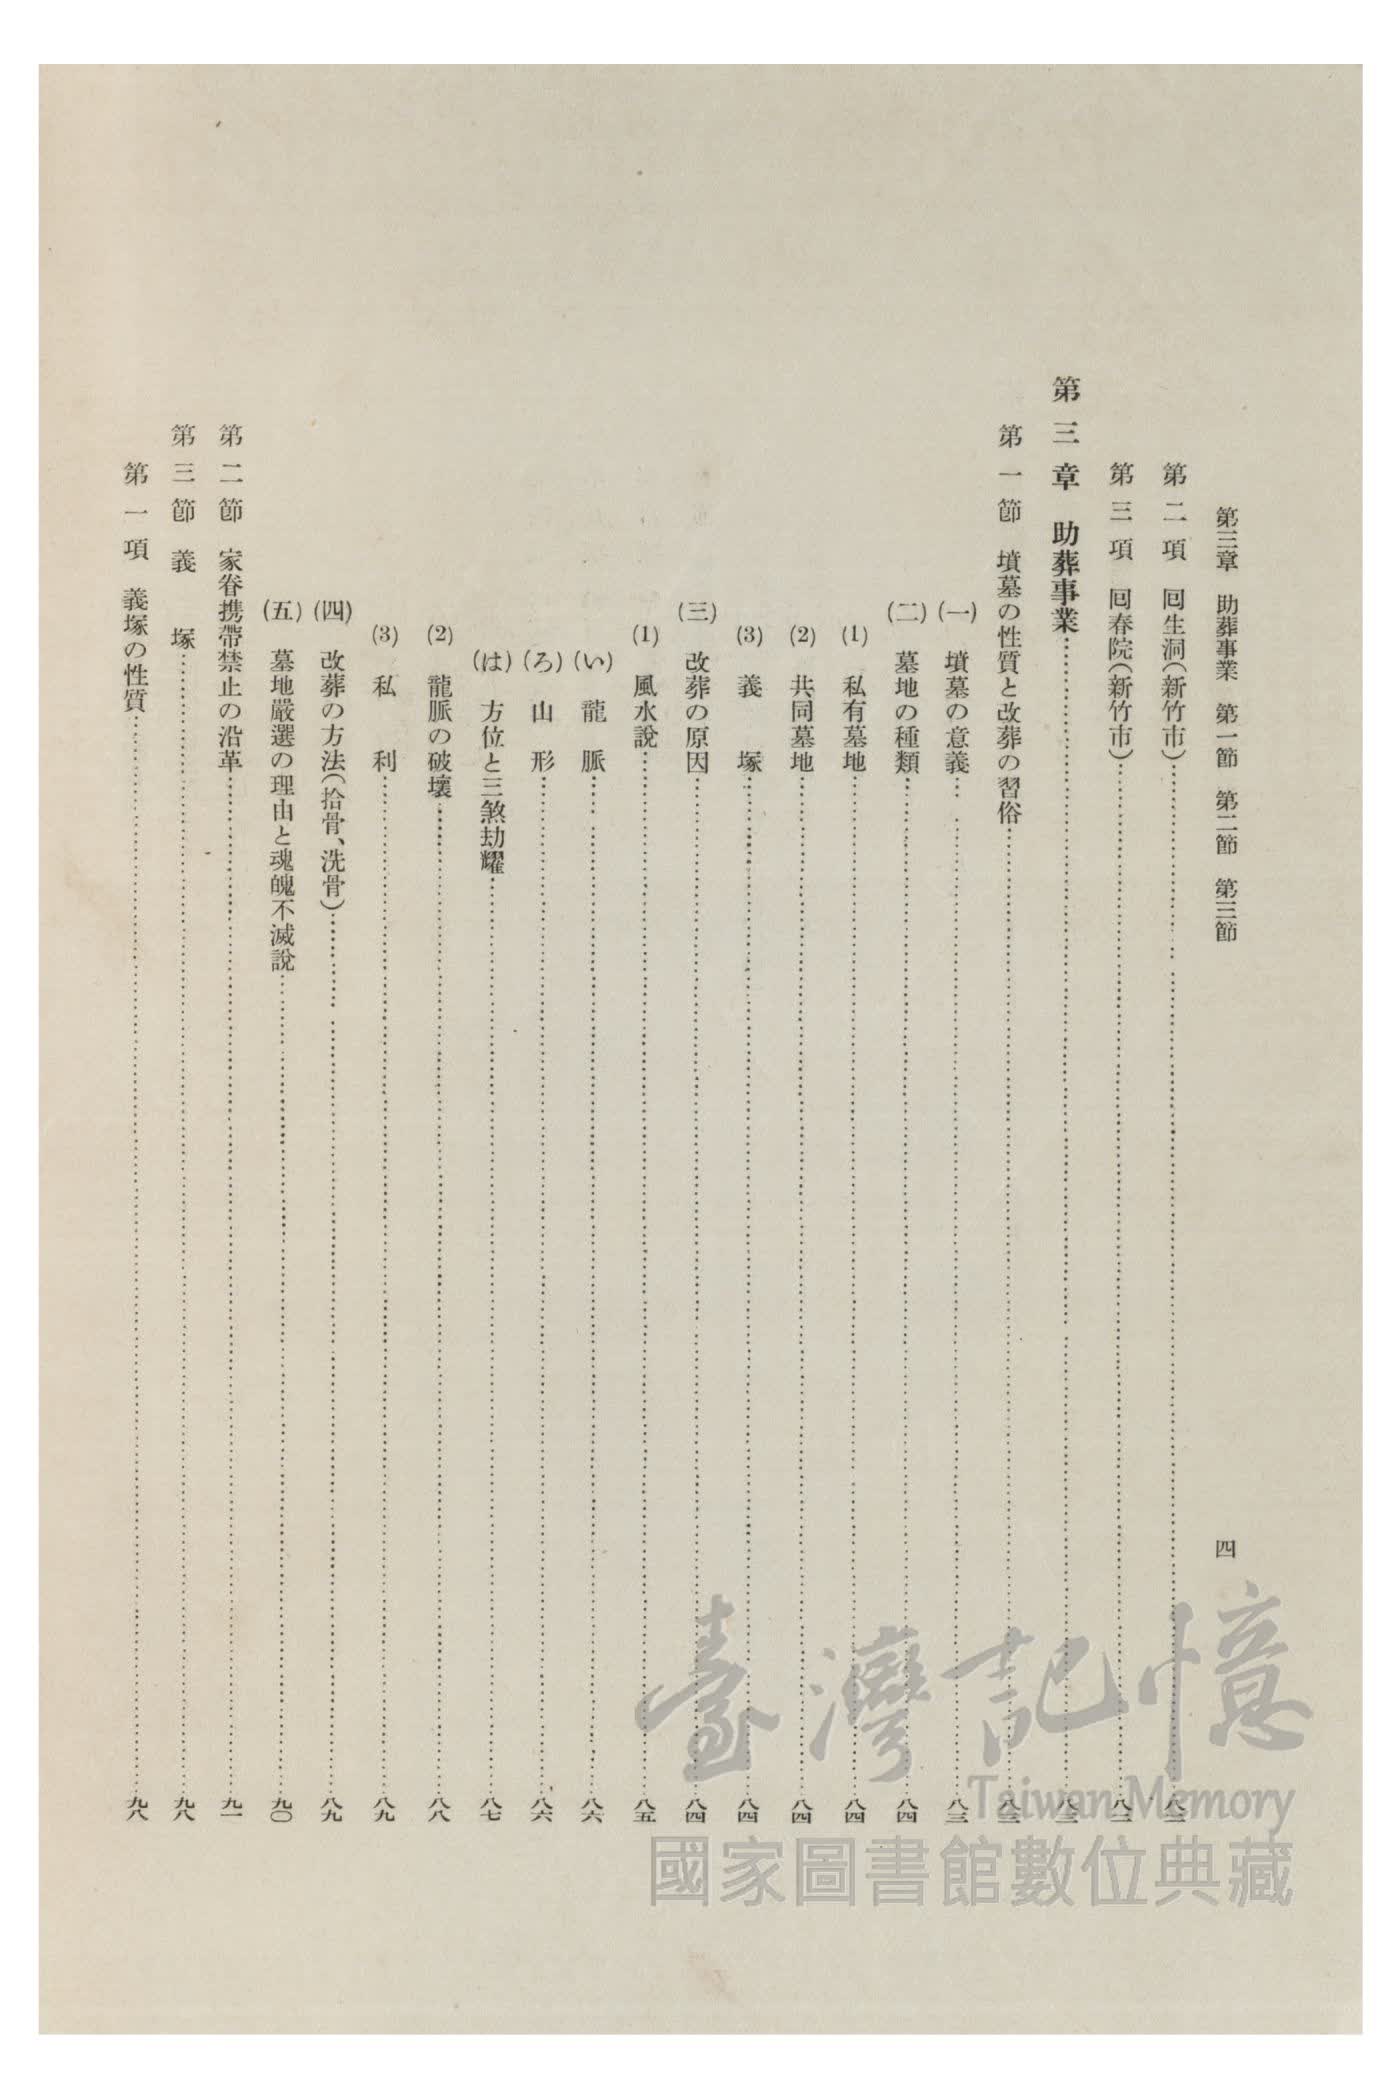 第三章　助葬事業　第一節　第二節　第三節　四
第二項　囘生洞(新竹市)……八二
第三項　囘春院(新竹市)……八二
第三章　助葬事業……八三
第一節　墳墓の性質と改葬の習俗……八三
(一)　墳墓の意義……八三
(二)　墓地の種類……八四
(1)　私有墓地……八四
(2)　共同墓地……八四
(3)　義塚……八四
(三)　改葬の原因……八四
(1)　風水說……八五
(い)　龍脈……八六
(ろ)　山形……八六
(は)　方位と三煞劫耀……八七
(2)　龍脈の破壞……八八
(3)　私利……八九
(四)　改葬の方法(拾骨、洗骨)……八九
(五)　墓地嚴選の理由と魂魄不滅說……九〇
第二節　家眷携帶禁止の沿革……九一
第三節　義塚……九八
第一項　義塚の性質……九八
臺灣記憶
Taiwan Memory
國家圖書館數位典藏